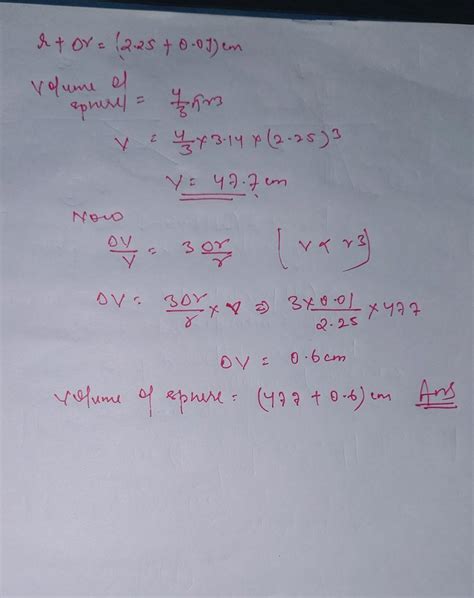 r + Δr = (2.25 + 0.01) cm
Volume of sphere = 4/3 πr3
V = 4/3 × 3.14 × (2.25)3
V = 47.7 cm
Now
ΔV/V = 3 Δr/r [V ∝ r3]
ΔV = 3Δr/r × V ⇒ 3×0.01/2.25 × 477
ΔV = 0.6 cm
Volume of sphere = (477 + 0.6) cm Ans